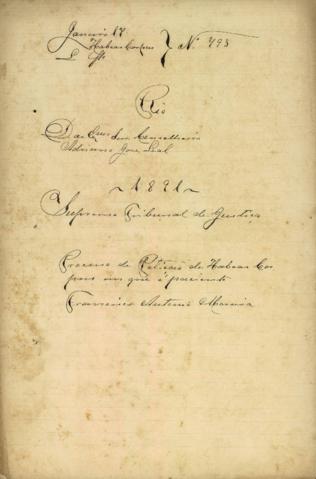 Janeiro 17
Habeas Corpus N. 793
Rio
Conselheiro
Adriano José Leal
~ 1891 ~
Supremo Tribunal de Justiça
Processo de Petição de Habeas Cor
pus em que é paciente
Francisco Antonio